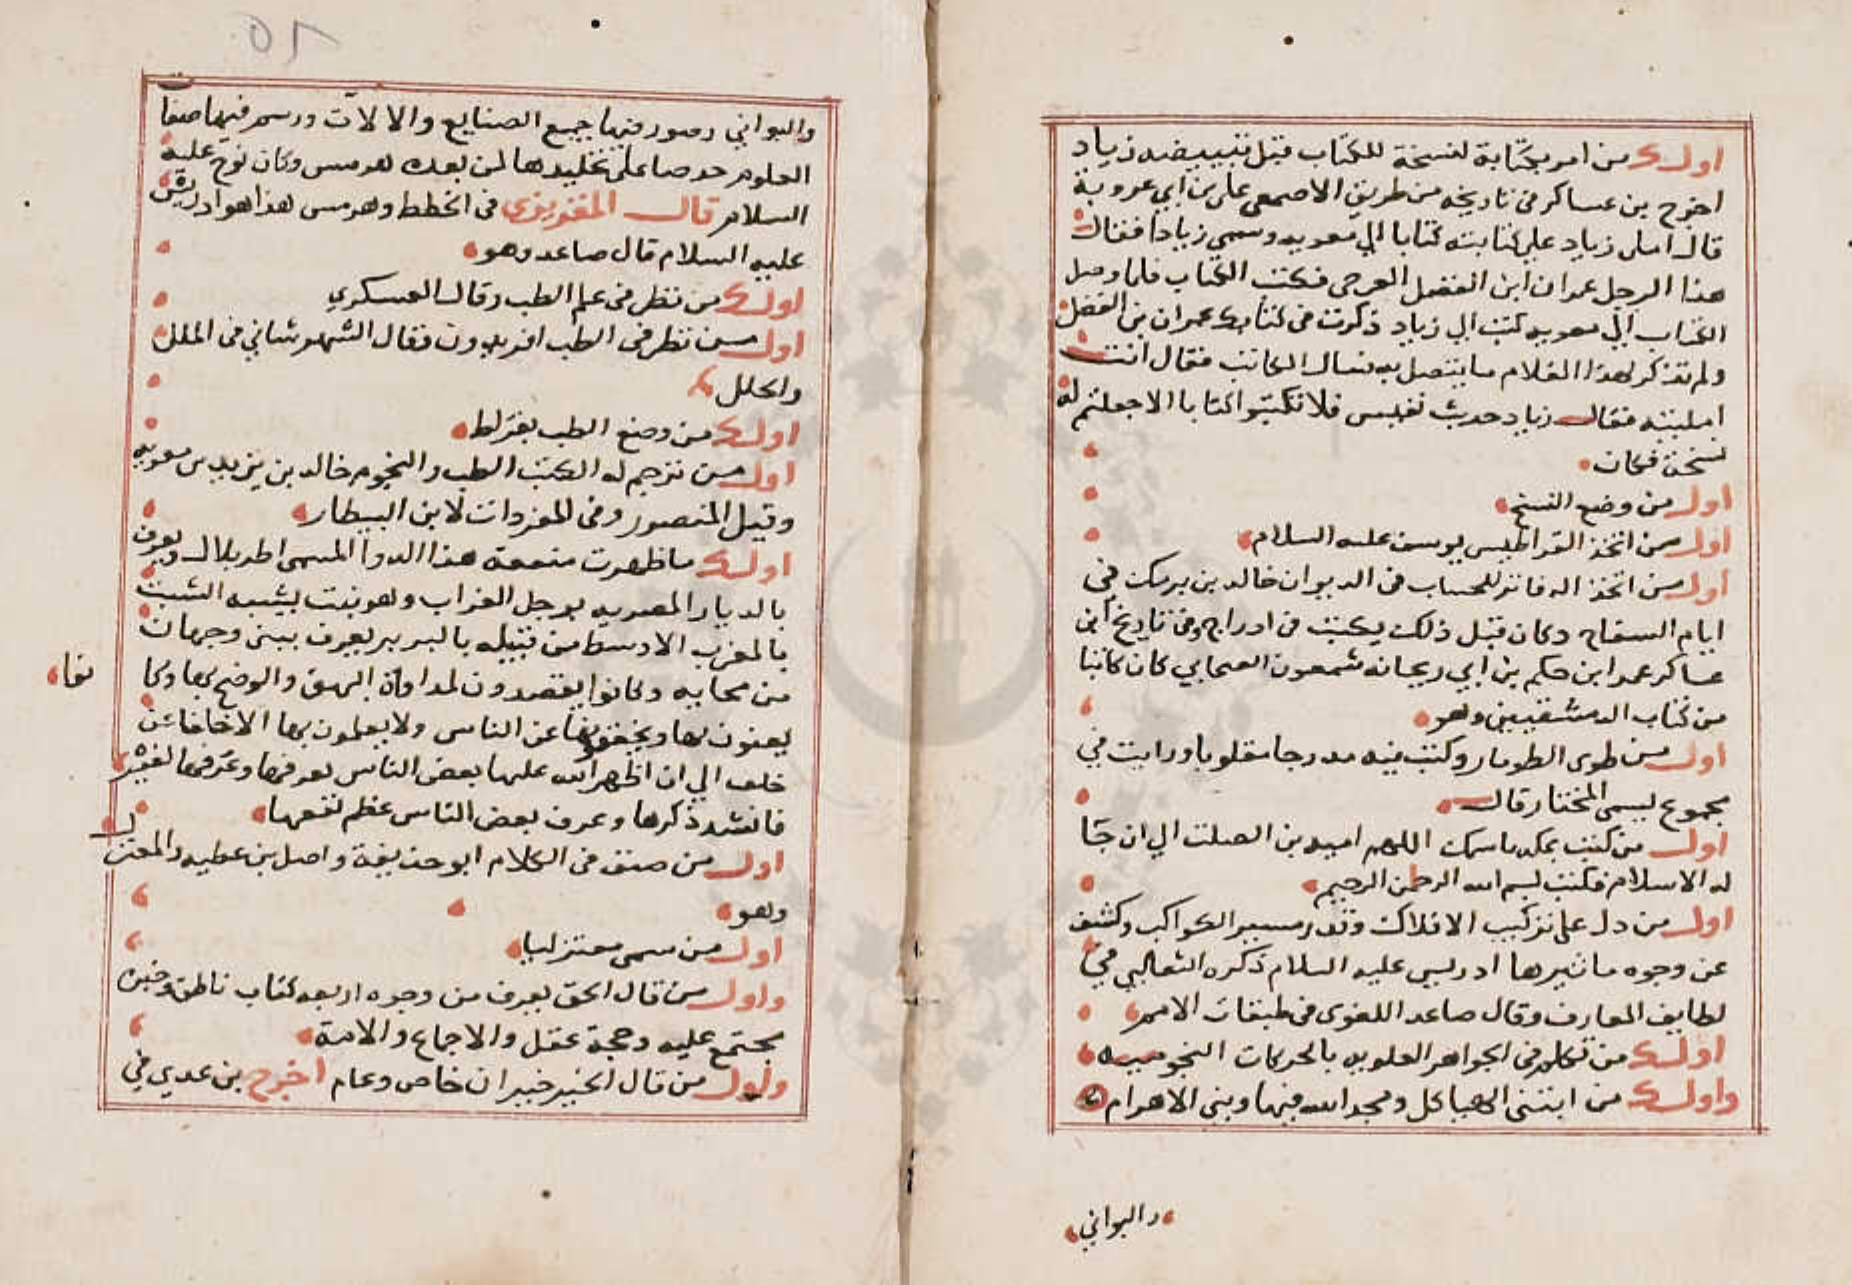 اول من امر بكتابة لنسخة للكتاب قبل تبييضه زياد
اخرج بن عساكر فى تاريخه من طريق الاصمعى على بن ابي عروبة
قال املى زياد على كتابته كتابا الي معويه وسمي زيادا فقال
هذا الرجل عمران ابن الفضل فكتب الكتاب فلما وصل
الكتاب الي معويه كتب الي زياد ذكرت فى كتابك عمران بن الفضل
ولم تذكر لهذا الغلام ما يتصل به فسال الكاتب فقال انت
امليتيه فقال زياد حدث نفيس فلا تكتبوا كتابا الا جعلتم له
نسخة فكان
اول من وضع النسخ
اول من اتخذ القراطيس يوسف عليه السلام
اول من اتخذ الدفاتر للحساب فى الديوان خالد بن برمك في
ايام السفاح وكان قبل ذلك يكتب فى ادراج وفى تاريخ ابن
عساكر عمر ابن حكيم بن ابي ريحانه شمعون الصحابي كان كاتبا
من كتاب الدمشقيين وهو
اول من طوى الطومار وكتب فيه مدرجا مقلوبا ورايت في
مجموع ليسمى المختار قال
اول من كتب بمكه باسمك اللهم اميه بن الصلت الي ان جا
له الاسلام فكتب بسم الله الرحمن الرحيم
اول من دل على تركيب الافلاك وقدر مسير الكواكب وكشف
عن وجوه تاثيرها ادريس عليه السلام ذكره الثعالبي في
لطايف المعارف وقال صاعد اللغوى فى طبقات الامم
اول من تكلم فى الجواهر العلويه بالحركات النجوميه
واول من ابتنى الهياكل ومجد الله فيها وبنى الاهرام
والبواني
والبواني وصور فيها جميع الصنايع والالات ورسم فيها صفا
العلوم حرصا على تخليدها لمن بعده هرمس وكان نوح عليه
السلام قال المقريزى فى الخطط وهرمس هذا هو ادريس
عليه السلام قال صاعد وهو
اول من نظر فى علم الطب وقال العسكري
اول من نظر فى الطب افريدون فقال الشهرشاني فى الملل
والحلل
اول من وضع الطب بقراط
اول من ترجم له الكتب الطب والنجوم خالد بن يزيد بن معويه
وقيل المنصور وفى المفردات لابن البيطار
اول ما ظهرت منفعة هذا الدوا المسمى اطريلال ويعرف
بالديار المصريه برجل الغراب وهو نبت يشبه الشبث
بالمغرب الاوسط من قبيله بالبربر يعرف ببنى وجهان
من بجايه وكانوا يقصدون لمداواة البهق والوضح بها وكا
نوا
يضنون بها ويخفونها عن الناس ولا يعلمون بها الا خلفا عن
خلف الي ان اظهر الله عليها بعض الناس فعرفها وعرفها لغيره
فانشد ذكرها وعرف بعض الناس عظم نفعها
اول من صنف فى الكلام ابو حذيفة واصل بن عطيه والمعتزل
وهو
اول من سمى معتزليا
واول من قال الحق يعرف من وجوه اربعه كتاب ناطق وخبره
مجتمع عليه وحجة عقل والاجماع والامة
واول من قال الخبر خبران خاص وعام اخرج بن عدي في